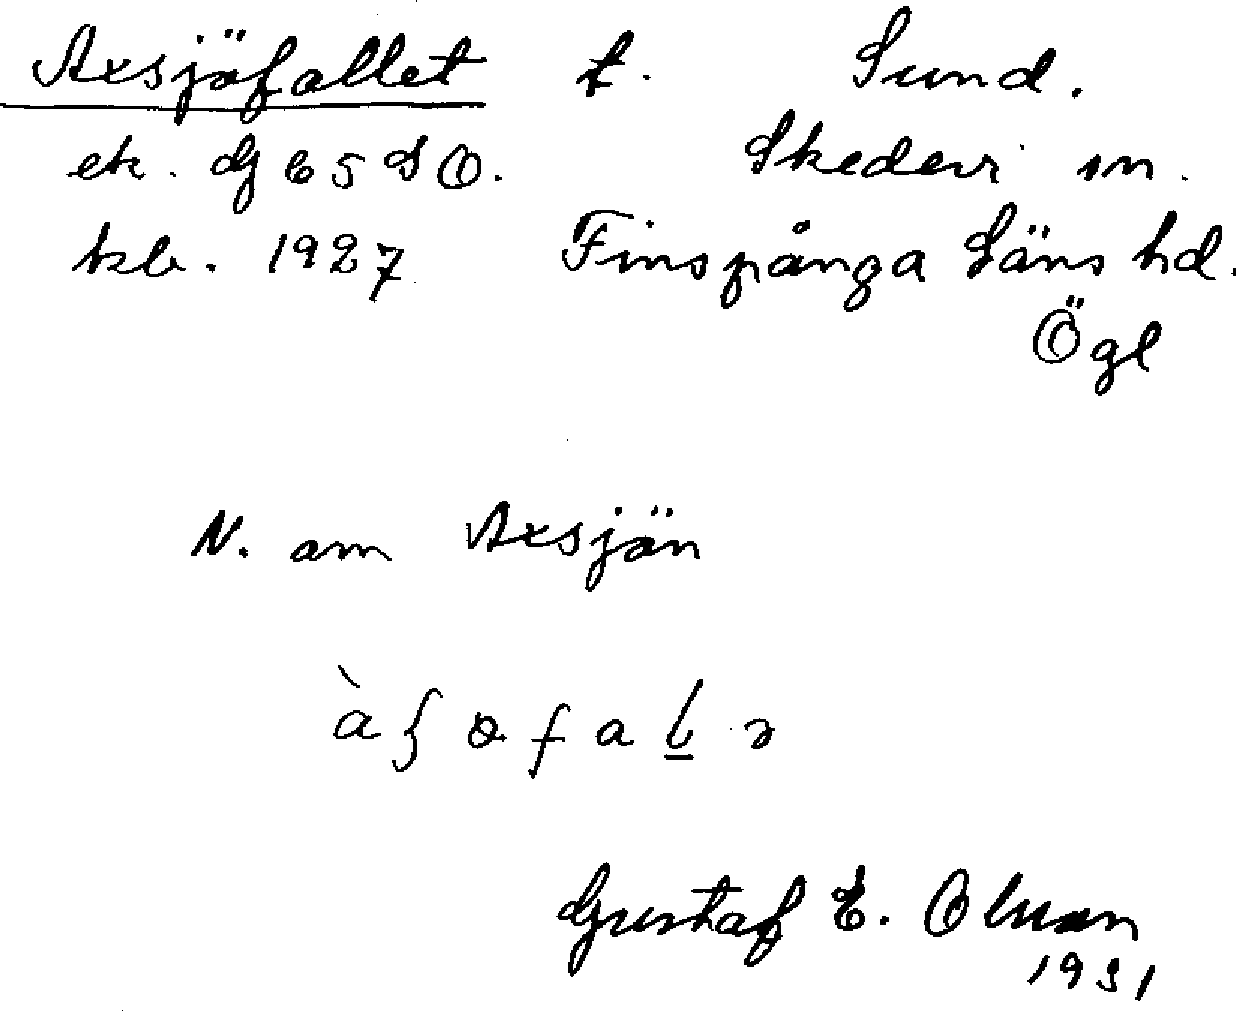 Axsjöfallet t. Sund.
ek. G 65 SO. Skedevi sn.
kb. 1927 Finspånga Läns hd.
Ögl
N. om Axsjön
Gustaf E. Olsson
1931